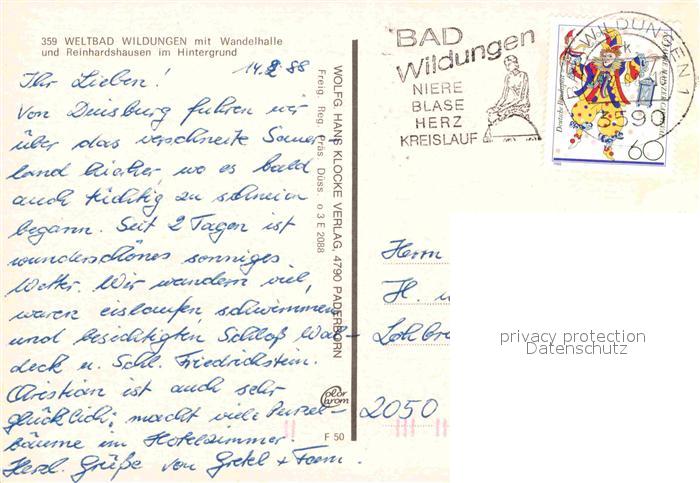 359 WELTBAD WILDUNGEN mit Wandelhalle
und Reinhardshausen im Hintergrund
14.2.88
Ihr Lieben!
Von Duisburg fuhren wir
über das verschneite Sauer-
land hierher, wo es bald
auch tüchtig zu schneien
begann. Seit 2 Tagen ist
wunderschönes sonniges
Wetter. Wir wandern viel,
waren eislaufen, schwimmen
und besichtigten Schloß Wal-
deck u. Schl. Friedrichstein.
Christian ist auch sehr
glücklich; macht viele Purzel-
bäume im Hotelzimmer.
Herzl. Grüße von Gretel +
WOLFG. HANS KLOCKE VERLAG, 4790 PADERBORN
Freig. Reg. Präs. Düss. o 3 E 2088
color
chrom
F 50
BAD
Wildungen
NIERE
BLASE
HERZ
KREISLAUF
BAD WILDUNGEN 1
3590
Deutsche Bundespost
60
Herrn
H. u
Lohbr
2050
privacy protection
Datenschutz